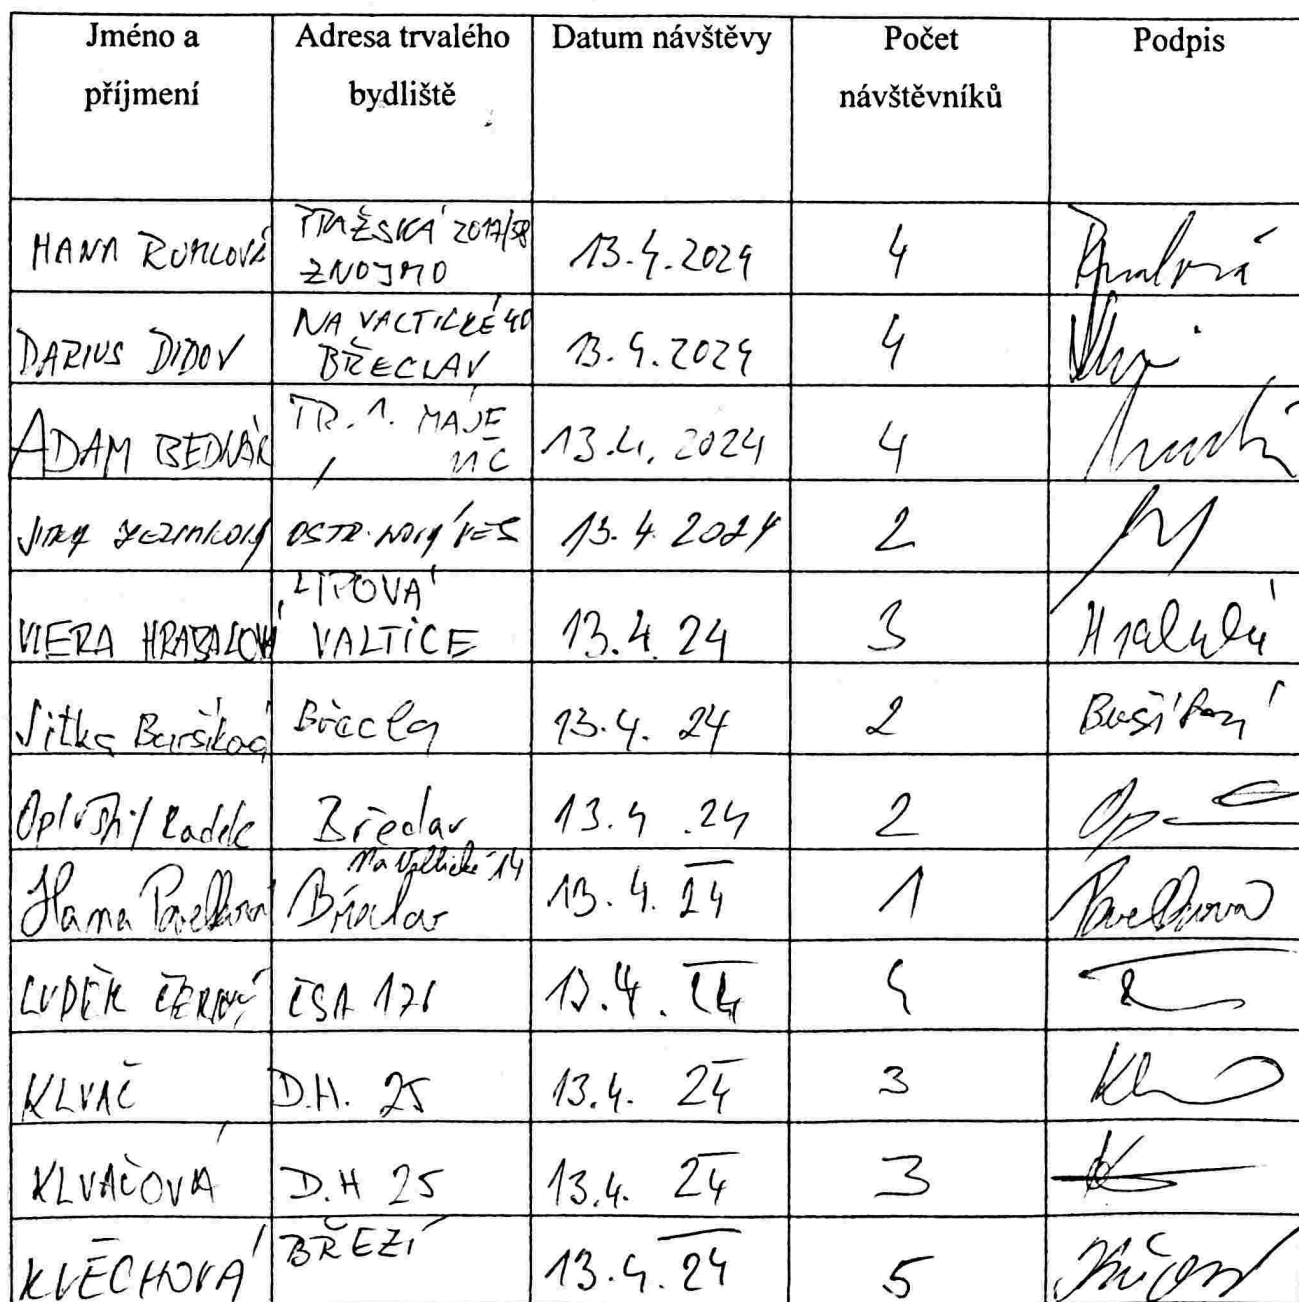 Jméno a příjmení Adresa trvalého bydliště Datum návštěvy Počet návštěvníků Podpis
HANA RUMLOVÁ PRAŽSKÁ 2017/58 ZNOJMO 13.4.2024 4
DARIUS DIDOV NA VALTICKÉ 40 BŘECLAV 13.4.2024 4
ADAM BEDNÁŘ TŘ. 1. MÁJE 13.4.2024 4
13.4.2024 2
VIERA HRABALOVÁ LIPOVÁ VALTICE 13.4.24 3
Jitka Buršíková Břeclav 13.4.24 2
Opluštil Radek Břeclav 13.4.24 2
Hana Pavelková Na Valtické 14 Břeclav 13.4.24 1 Pavelková
LUDĚK ČERNÝ ČSA 13.4.24 4
KLVAČ D.H. 25 13.4.24 3
KLVAČOVÁ D.H 25 13.4.24 3
KVĚCHOVÁ BŘEZÍ 13.4.24 5